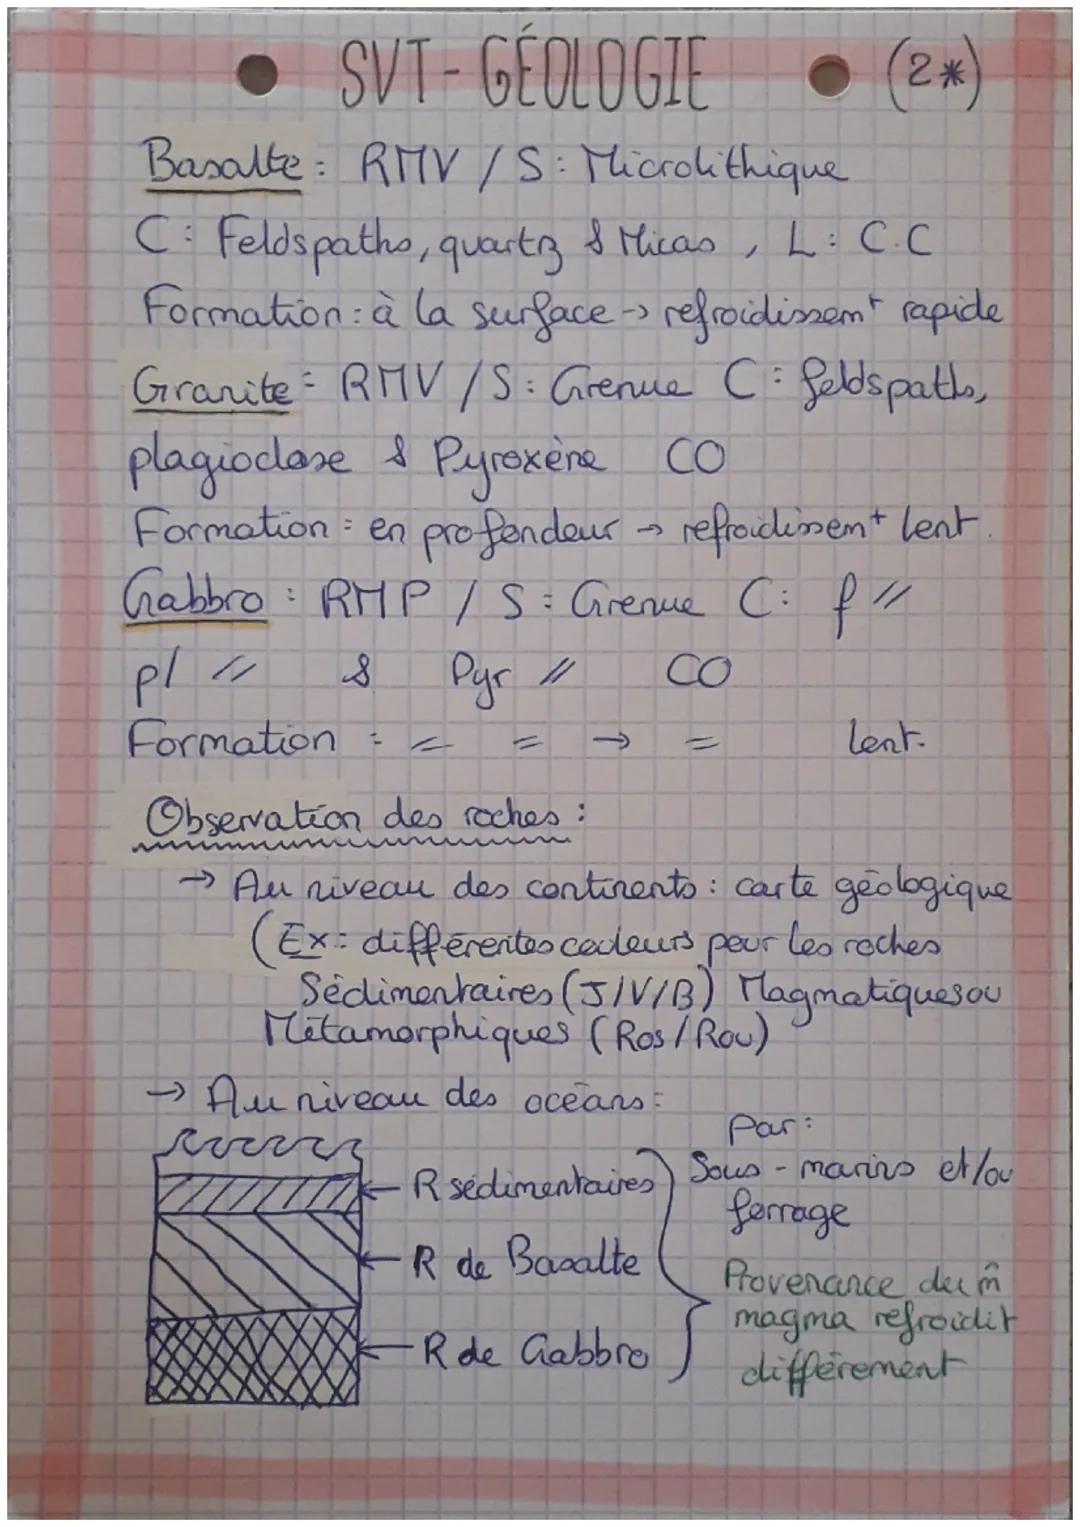 SVT - GÉOLOGIE (2*)
Basalte : RMV / S : Microlithique
C : Feldspaths, quartz & Micas , L : C.C
Formation : à la surface -> refroidissemt rapide
Granite = RMV / S : Grenue C : feldspaths,
plagioclase & Pyroxène CO
Formation : en profondeur -> refroidissemt lent.
Gabbro : RMP / S : Grenue C : f //
pl // & Pyr // CO
Formation : = = -> = lent.
Observation des roches :
-> Au niveau des continents : carte géologique
(Ex : différentes couleurs pour les roches
Sédimentaires (J/V/B) Magmatiques ou
Métamorphiques (Ros/Rou)
-> Au niveau des océans :
Par :
R sédimentaires
Sous-marins et/ou
forrage
R de Basalte
Provenance du m̂
magma refroidit
différement
R de Gabbro